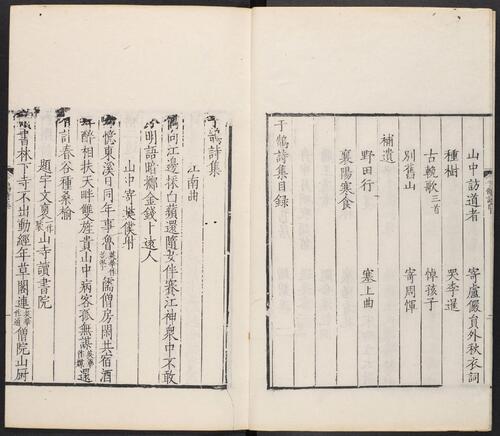 山中訪道者 寄盧儼員外秋衣詞
種樹 哭李暹
古輓歌三首 悼孩子
別舊山 寄周惲
補遺
野田行 塞上曲
襄陽寒食
于鵠詩集目録
于鵠詩集
江南曲
偶向江邊採白蘋還隨女伴賽江神衆中不敢
分明語暗擲金錢卜遠人
山中寄樊僕射
憶東溪日同年事魯英華作若學儒僧房閑共宿酒
醉相扶天畔雙旌貴山中病客孤無謀英華作媒還
有計春谷種桑榆
題宇文褧一作裴山寺讀書院
書林下寺不出動經年草閣連英華作通僧院山厨